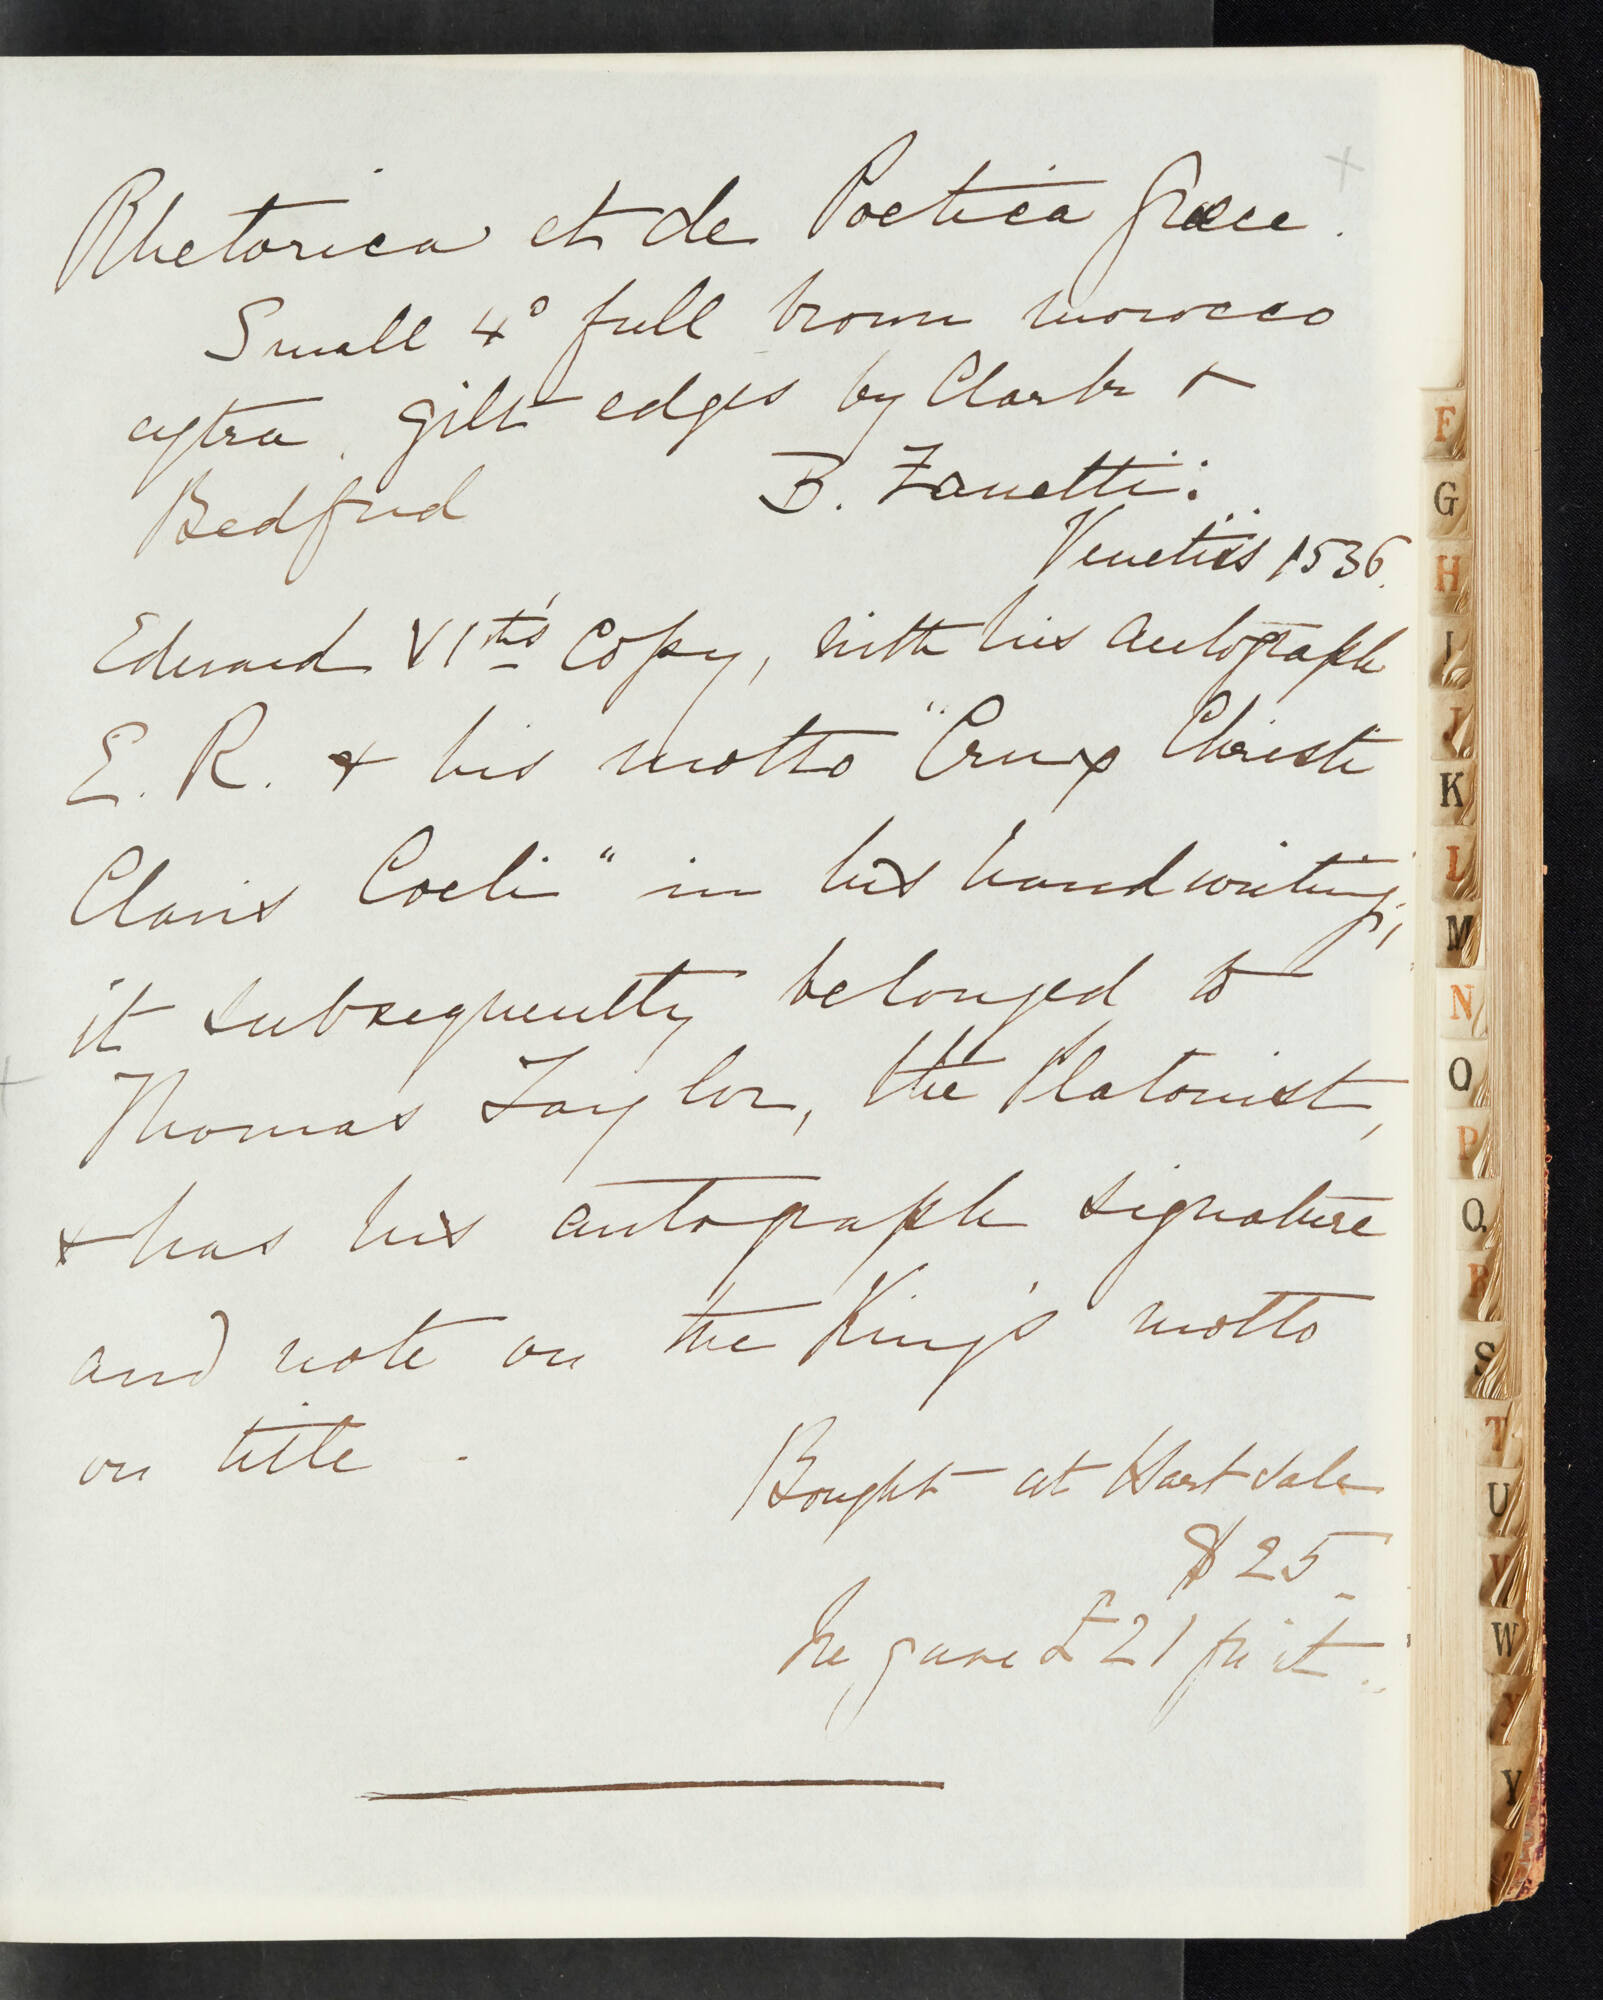 Rhetorica et de Poetica Graece.
Small 4° full brown morocco
extra. gilt edges by Clarke &
Bedford
B. Zanetti:
Venetiis 1536.
Edward VIth's Copy, with his autograph
E. R. & his motto "Crux Christi
Clavis Coeli" in his handwriting,
it subsequently belonged to
Thomas Taylor, the Platonist,
& has his autograph signature
and note on the King's motto
on title.
Bought at Hart sale
$25
he gave £21 for it.
F
G
H
I
J
K
L
M
N
O
P
Q
R
S
T
U
V
W
X
Y